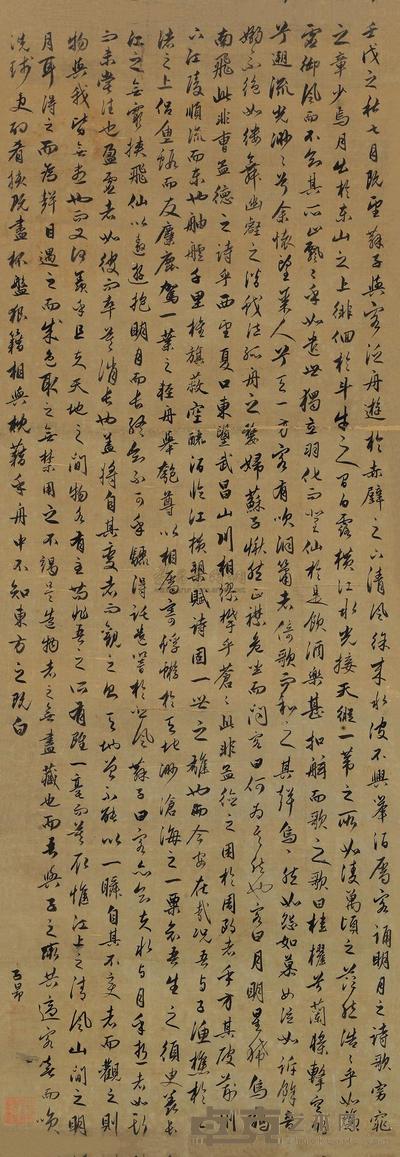 壬戌之秋七月既望蘇子與客泛舟遊於赤壁之下清風徐來水波不興舉酒屬客誦明月之詩歌窈窕
之章少焉月出於東山之上徘徊於斗牛之間白露橫江水光接天縱一葦之所如凌萬頃之茫然浩浩乎如馮
虛御風而不知其所止飄飄乎如遺世獨立羽化而登仙於是飲酒樂甚扣舷而歌之歌曰桂櫂兮蘭槳擊空明
兮遡流光渺渺兮余懷望美人兮天一方客有吹洞簫者倚歌而和之其聲嗚嗚然如怨如慕如泣如訴餘音
嫋嫋不絕如縷舞幽壑之潛蛟泣孤舟之嫠婦蘇子愀然正襟危坐而問客曰何為其然也客曰月明星稀烏鵲
南飛此非曹孟德之詩乎西望夏口東望武昌山川相繆鬱乎蒼蒼此非孟德之困於周郎者乎方其破荊州
下江陵順流而東也舳艫千里旌旗蔽空釃酒臨江橫槊賦詩固一世之雄也而今安在哉況吾與子漁樵於江
渚之上侶魚蝦而友麋鹿駕一葉之輕舟舉匏尊以相屬寄蜉蝣於天地渺滄海之一粟哀吾生之須臾羨長
江之無窮挾飛仙以遨遊抱明月而長終知不可乎驟得託遺響於悲風蘇子曰客亦知夫水與月乎逝者如斯
而未嘗往也盈虛者如彼而卒莫消長也蓋將自其變者而觀之則天地曾不能以一瞬自其不變者而觀之則
物與我皆無盡也而又何羨乎且夫天地之間物各有主苟非吾之所有雖一毫而莫取惟江上之清風山間之明
月耳得之而為聲目遇之而成色取之無禁用之不竭是造物者之無盡藏也而吾與子之所共適客喜而笑
洗盞更酌肴核既盡杯盤狼籍相與枕藉乎舟中不知東方之既白
子昂